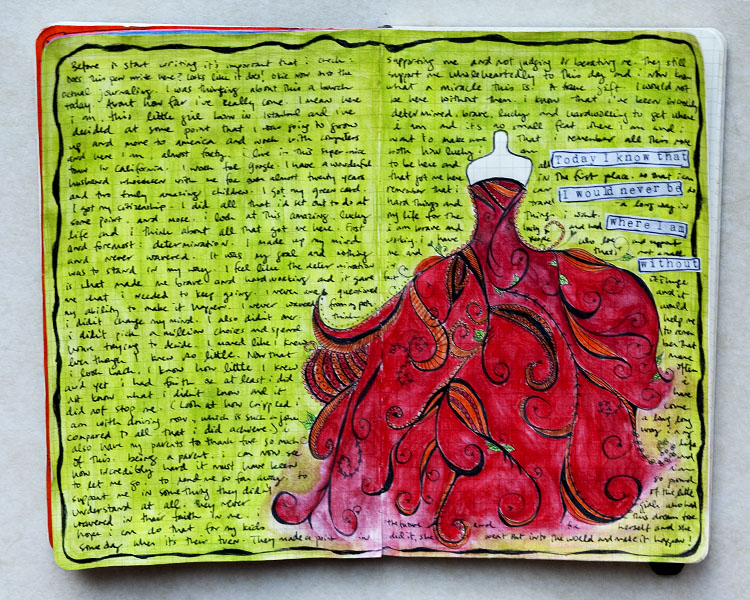 Before I start writing it's important that i check:
Does this pen write here? Looks like it does! Okie now onto the
actual journaling. I was thinking about this a bunch
today. About how far i've really come. I mean here
i am, this little girl born in Istanbul and i've
decided at some point that i was going to grow
up and move to america and work with computers
and here i am almost forty. i live in this super-nice
town in California. i work for google. i have a wonderful
husband who's been with me for almost twenty years
and two truly amazing children. I got my green card.
I got my citizenship. i did all that i'd set out to do at
some point and more. i look at this amazing, lucky
life and i think about all that got me here. First
and foremost: determination. I made up my mind
and never wavered. It was my goal and nothing
was to stand in my way. I feel like the determination
is what made me brave and hardworking and it gave
me what i needed to keep going. I never even questioned
my ability to make it happen. I never wavered from my path.
i didn't change my mind. I also didn't over think
i didn't pick a million choices and spend
hours trying to decide. I moved like i knew
even though i knew so little. Now that
i look back, I know how little i knew
and yet i had faith or at least i did
not know what i didn't know and it
did not stop me. (Look at how crippled i
am with driving now, which is such a joke
compared to all that i did achieve.) i
also have my parents to thank for so much
of this. being a parent, i can now see
how incredibly hard it must have been
to let me go. to send me so far away. to
support me in something they didn't
understand at all. they never
wavered in their faith in me.
hope i can do that for my kids
someday when it's their turn. They made a point in
supporting me and not judging or berating me. They still
support me wholeheartedly to this day and i now know
what a miracle this is! A true gift. I would not
be here without them. i know that i've been incredibly
determined, brave, lucky and hardworking to get where
i am and it's no small feat. i here i am and i
want to make sure that i remember all this more
both how lucky
to be here and all
that got me here in the first place. so that i can
remember that i can do
hard things and a long way in
my life for the things i want.
i am brave and
working. i have people who love and support
me and that's not a
it's huge
and it
will
help me
to remem-
ber that
more
often
i
have
come
a long long
way in
my life
and
i'm
so proud
of the little
girl who had
this dream for
the future and for herself and she
did it, she went out into the world and made it happen!
Today I know that
I would never be
where I am
without